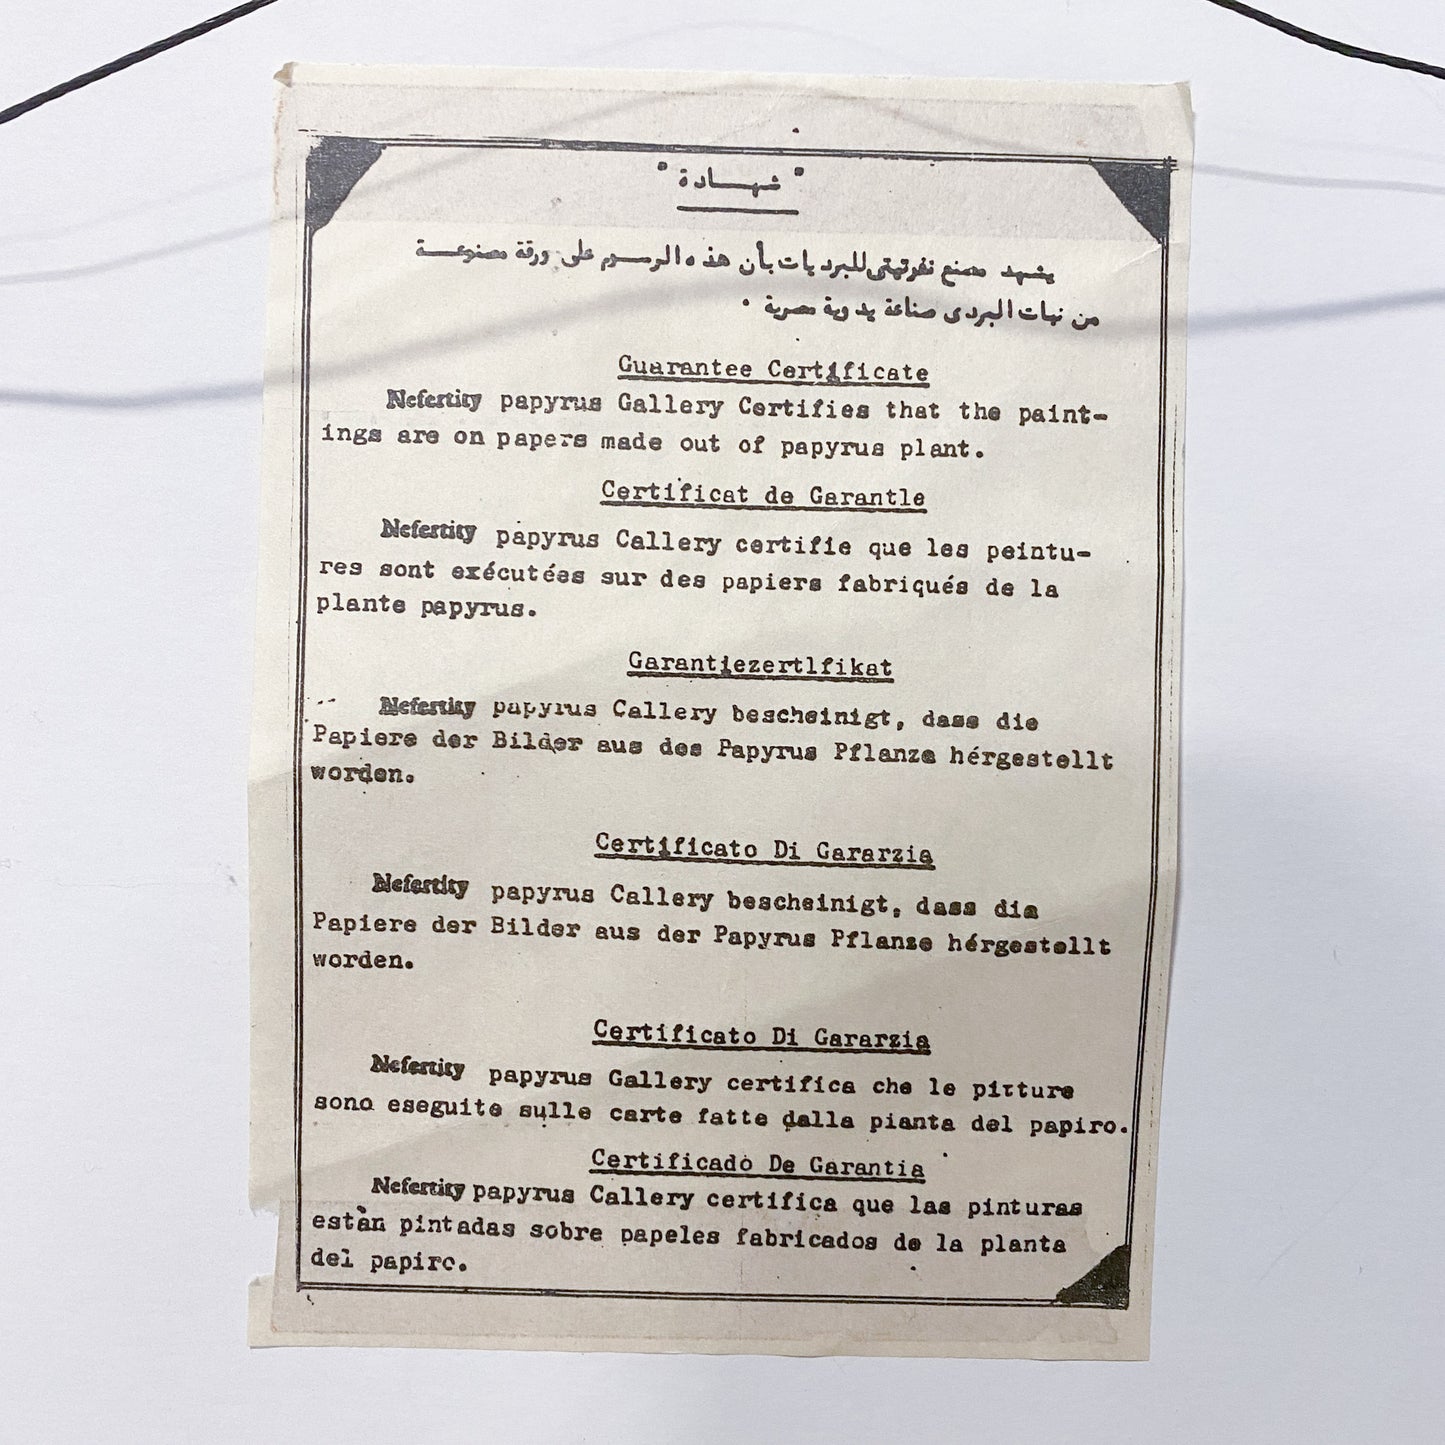 " شهادة "
يشهد مصنع نفرتيتى للبرديات بأن هذه الرسوم على ورقة مصنوعة
من نبات البردى صناعة يدوية مصرية .
Guarantee Certificate
Nefertity papyrus Gallery Certifies that the paint-
ings are on papers made out of papyrus plant.
Certificat de Garantle
Nefertity papyrus Callery certifie que les peintu-
res sont exécutées sur des papiers fabriqués de la
plante papyrus.
Garantiezertlfikat
Nefertity papyrus Callery bescheinigt, dass die
Papiere der Bilder aus des Papyrus Pflanze hérgestellt
worden.
Certificato Di Gararzia
Nefertity papyrus Callery bescheinigt, dass die
Papiere der Bilder aus der Papyrus Pflanse hérgestellt
worden.
Certificato Di Gararzia
Nefertity papyrus Gallery certifica che le pitture
sono eseguite sulle carte fatte dalla pianta del papiro.
Certificado De Garantia
Nefertity papyrus Callery certifica que las pinturas
están pintadas sobre papeles fabricados de la planta
del papiro.